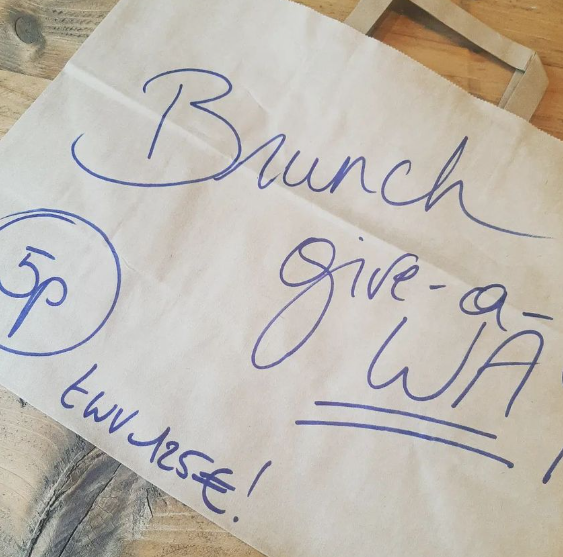 Brunch
give-a-
WA
5p
twv 125€!